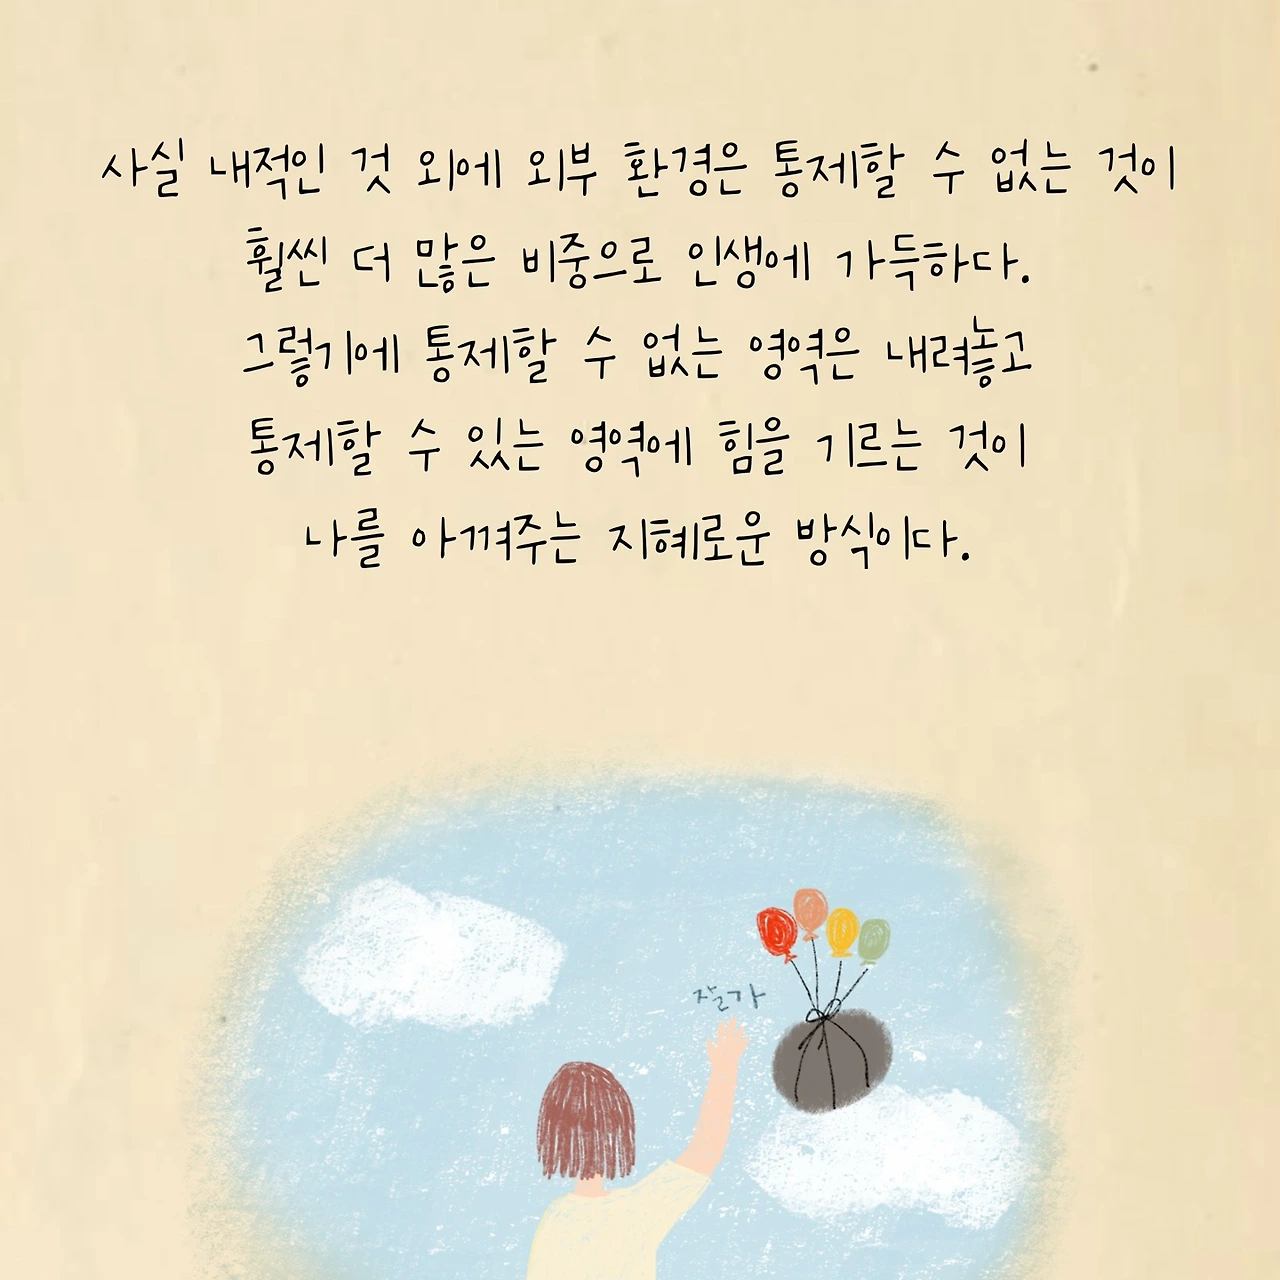 사실 내적인 것 외에 외부 환경은 통제할 수 없는 것이
훨씬 더 많은 비중으로 인생에 가득하다.
그렇기에 통제할 수 없는 영역은 내려놓고
통제할 수 있는 영역에 힘을 기르는 것이
나를 아껴주는 지혜로운 방식이다.
잘가